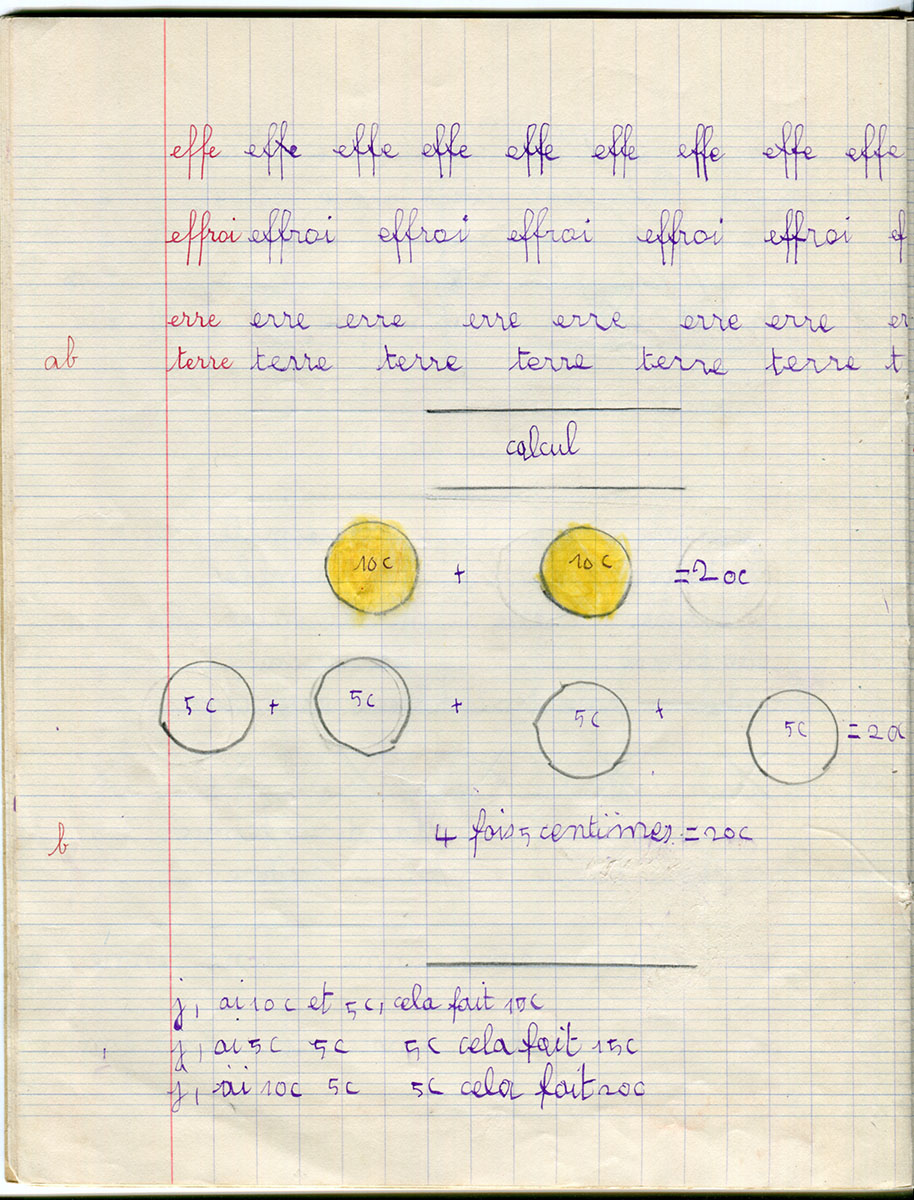 effe effe effe effe effe effe effe effe effe
effroi effroi effroi effroi effroi effroi ef
erre erre erre erre erre erre erre er
ab terre terre terre terre terre terre t
calcul
10c + 10c = 20c
5c + 5c + 5c + 5c = 20c
b 4 fois 5 centimes = 20c
j, ai 10c et 5c, cela fait 15c
j, ai 5c 5c 5c cela fait 15c
j, ai 10c 5c 5c cela fait 20c